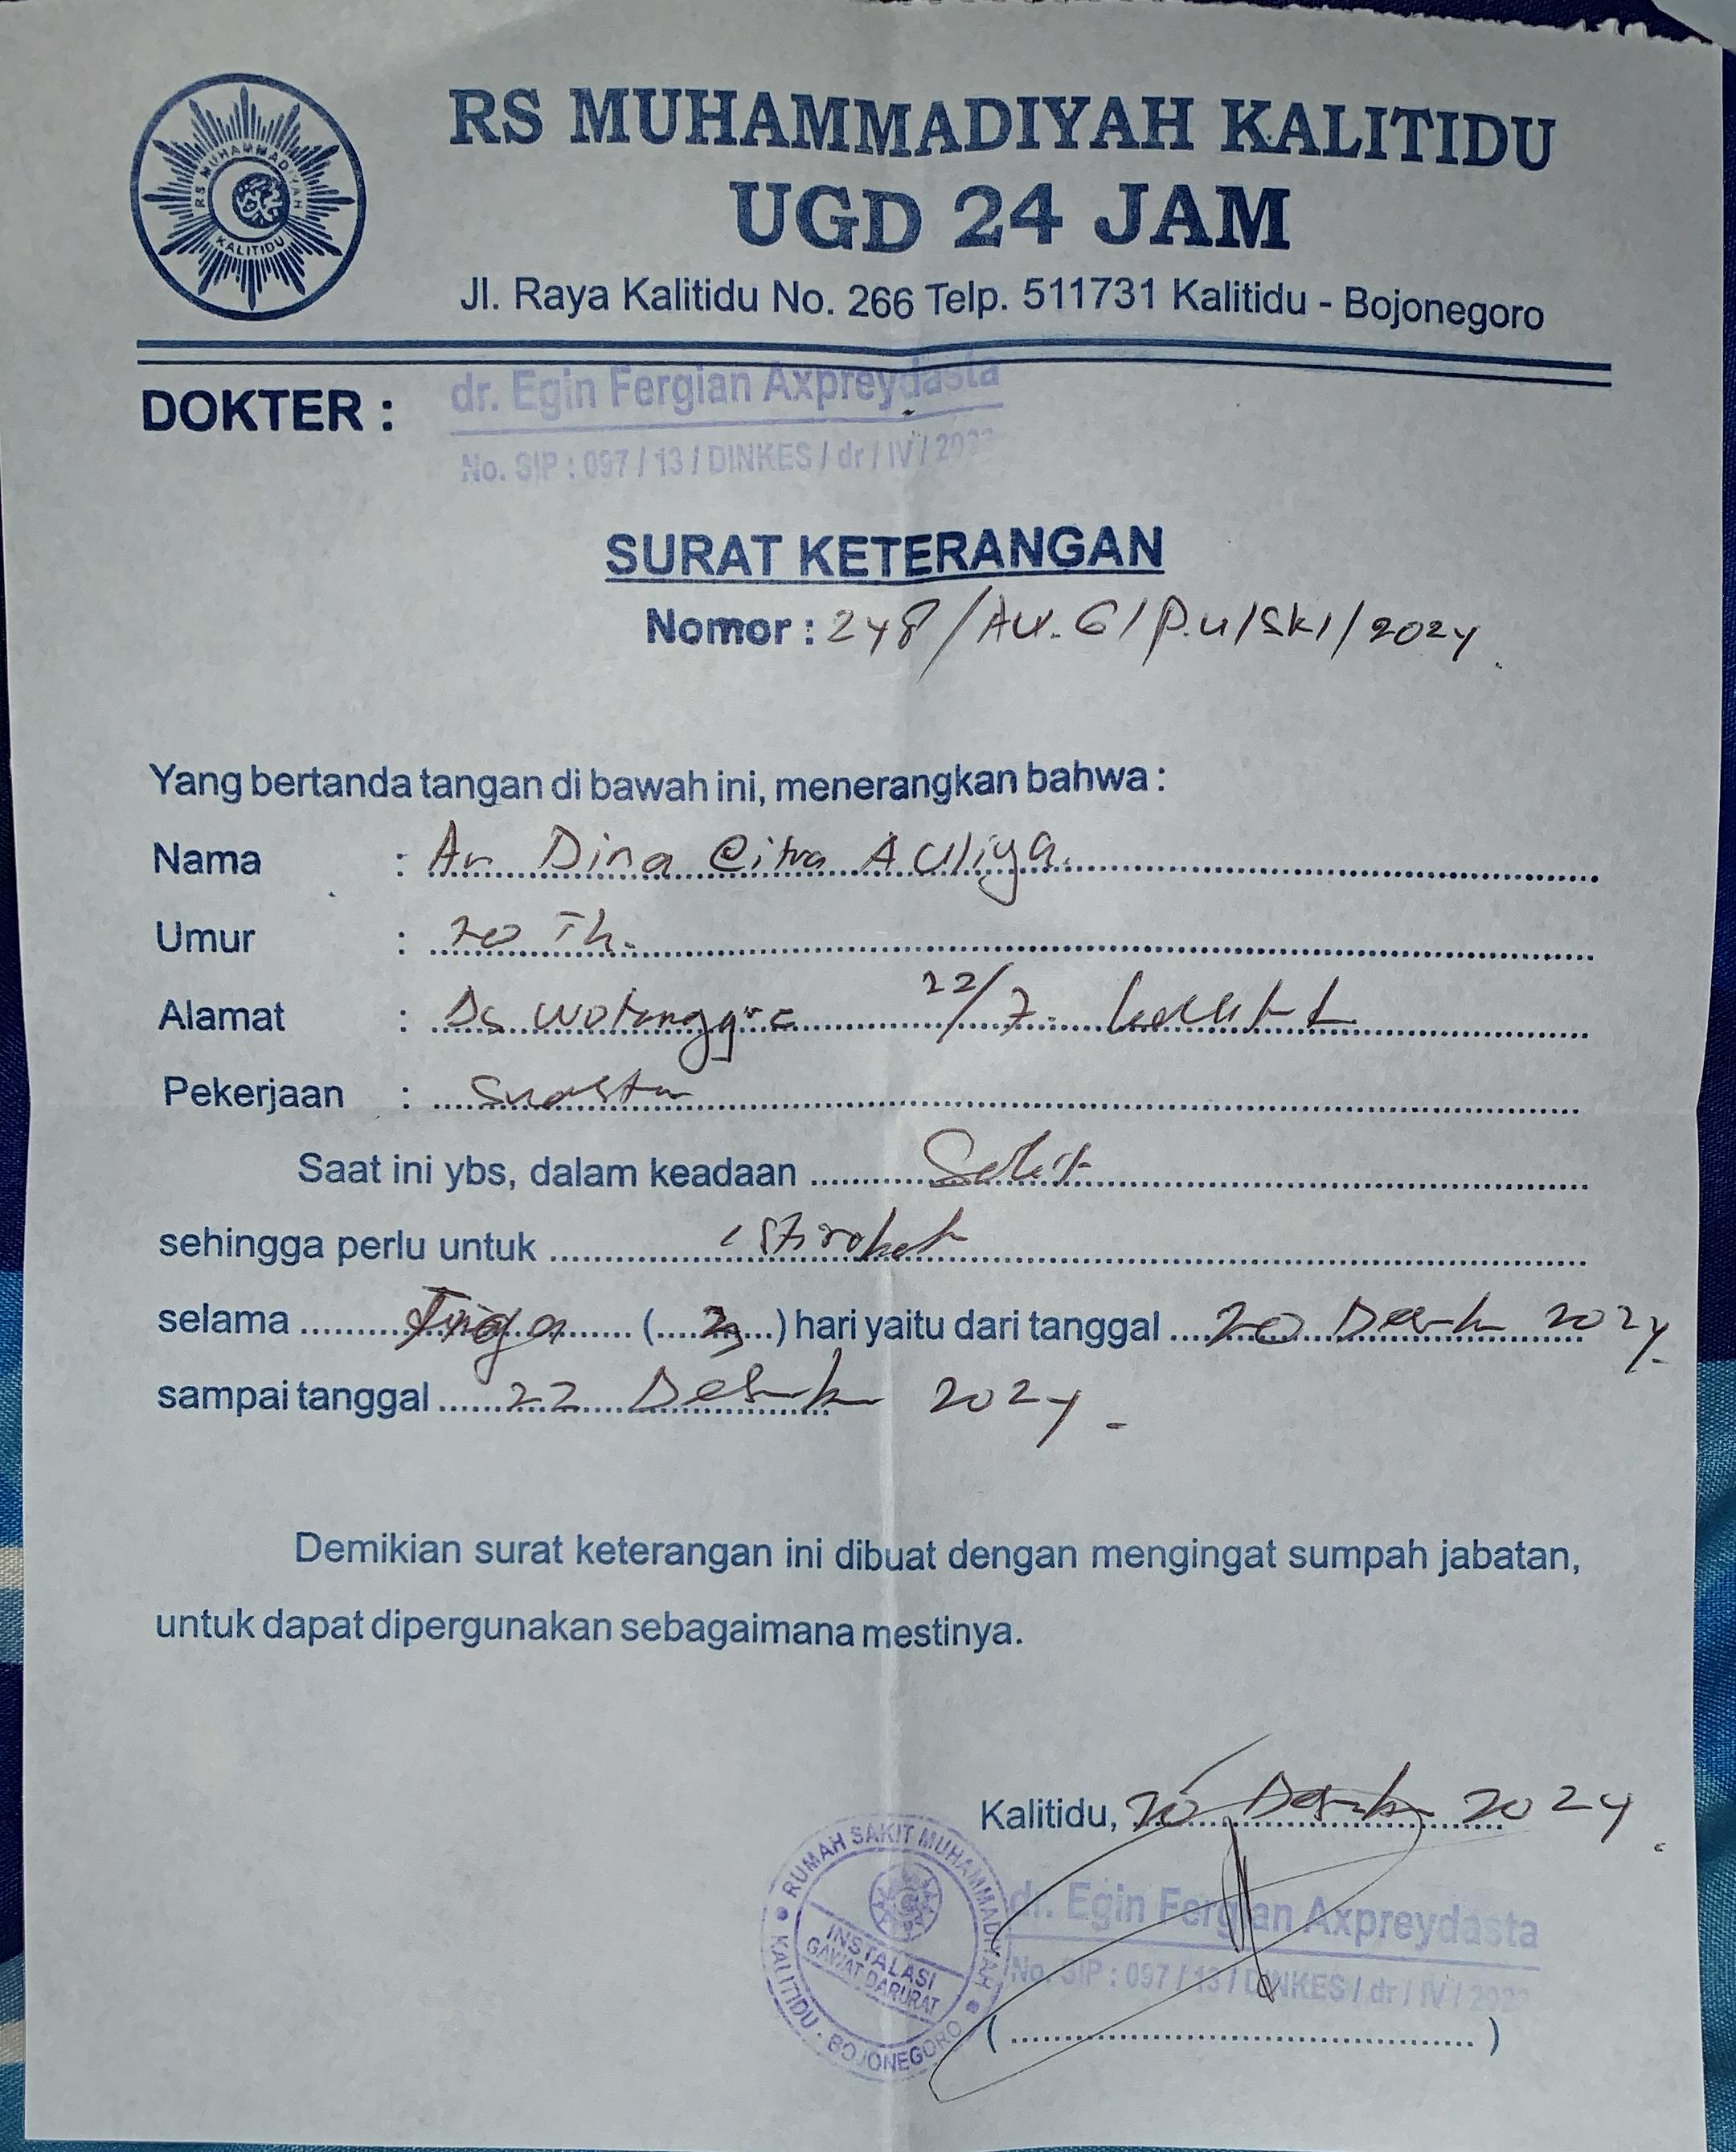 RS MUHAMMADIYAH KALITIDU
UGD 24 JAM
Jl. Raya Kalitidu No. 266 Telp. 511731 Kalitidu - Bojonegoro
RS MUHAMMADIYAH
KALITIDU
DOKTER :
dr. Egin Fergian Axpreydasta
No. SIP : 097 / 13 / DINKES / dr / IV /
SURAT KETERANGAN
Nomor : 248/AU.6/P.U/SKI/2024
Yang bertanda tangan di bawah ini, menerangkan bahwa :
Nama : An Dina Citra Auliya
Umur : 20 Th.
Alamat : Ds 22/7.
Pekerjaan : Swasta
Saat ini ybs, dalam keadaan Sakit
sehingga perlu untuk istirahat
selama Tiga ( 3 ) hari yaitu dari tanggal 20 Desember 2024.
sampai tanggal 22 Desember 2024.
Demikian surat keterangan ini dibuat dengan mengingat sumpah jabatan,
untuk dapat dipergunakan sebagaimana mestinya.
Kalitidu, 20 Desember 2024.
RUMAH SAKIT MUHAMMADIYAH
INSTALASI
GAWAT DARURAT
KALITIDU - BOJONEGORO
dr. Egin Fergian Axpreydasta
No. SIP : 097 / 13 / DINKES / dr / IV /
( )